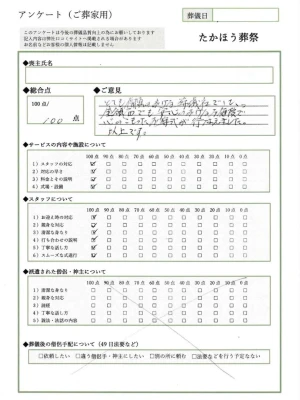 アンケート（ご葬家用）
葬儀日
このアンケートは今後の葬儀品質向上の為にお願いしております
記入内容は弊社口コミサイトへ掲載される場合があります
お名前などのお客様の個人情報は掲載しません
たかほう葬祭
◆喪主氏名
◆総合点
◆ご意見
100点/
100 点
以上です。
◆サービスの内容や施設について
100点 90点 80点 70点 60点 50点 40点 30点 20点 10点 0点
1）スタッフの対応
2）対応の早さ
3）料金とその説明
4）式場・設備
◆スタッフについて
100点 90点 80点 70点 60点 50点 40点 30点 20点 10点 0点
1）お迎え時の対応
2）親身な対応
3）清潔な身なり
4）打ち合わせの説明
5）丁寧な話し方
6）スムーズな式進行
◆派遣された僧侶・神主について
100点 90点 80点 70点 60点 50点 40点 30点 20点 10点 0点
1）清潔な身なり
2）親身な対応
3）読経
4）丁寧な話し方
5）説法・法話の内容
◆葬儀後の僧侶手配について（49日法要など）
□依頼したい □違う僧侶・神主にしたい □別の所に頼む □法要などを行う予定なない